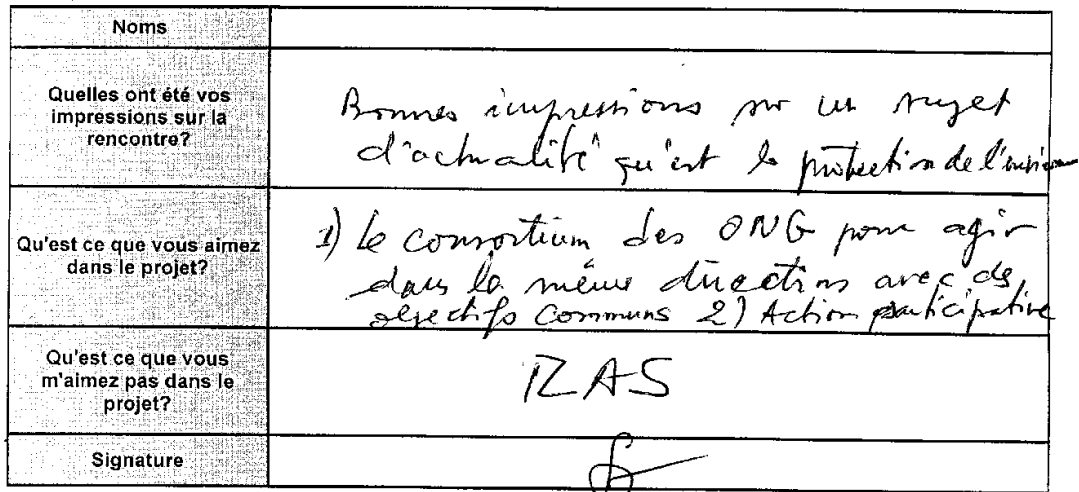 Noms
Quelles ont été vos
impressions sur la
rencontre?
Bonnes impressions sur un sujet
d'actualité qu'est la protection de l'environ
Qu'est ce que vous aimez
dans le projet?
1) Le consortium des ONG pour agir
dans la même direction avec des
objectifs communs 2) Action participative
Qu'est ce que vous
m'aimez pas dans le
projet?
RAS
Signature